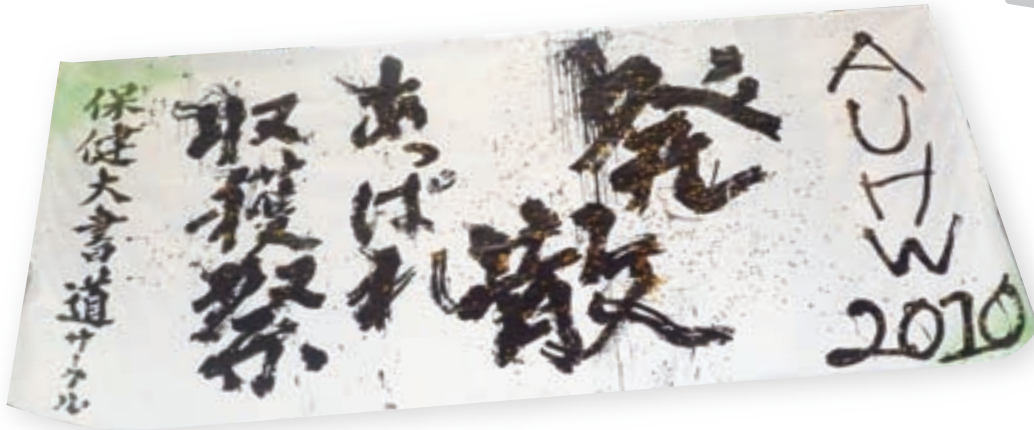 AUHW
2010
発散
あっぱれ
収穫祭
保健大書道サークル